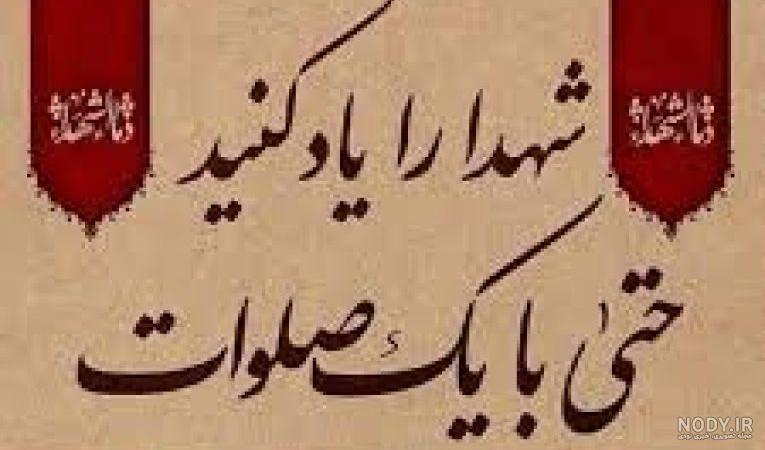 شهدا را یاد کنید
حتیٰ با یک صلوات
NODY.IR